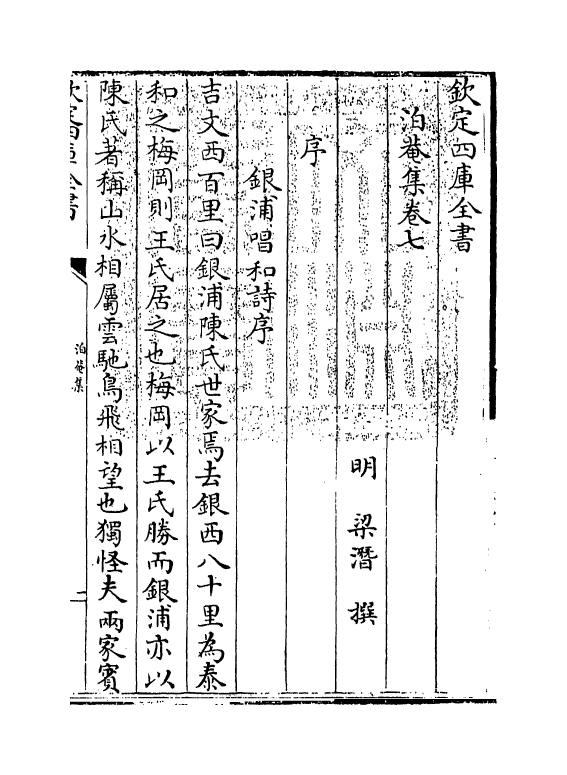 欽定四庫全書
泊菴集卷七
明 梁潛 撰
序
銀浦唱和詩序
吉文西百里曰銀浦陳氏世家焉去銀西八十里為泰
和之梅岡則王氏居之也梅岡以王氏勝而銀浦亦以
陳氏著稱山水相屬雲馳鳥飛相望也獨怪夫兩家賓
欽定四庫全書
泊菴集